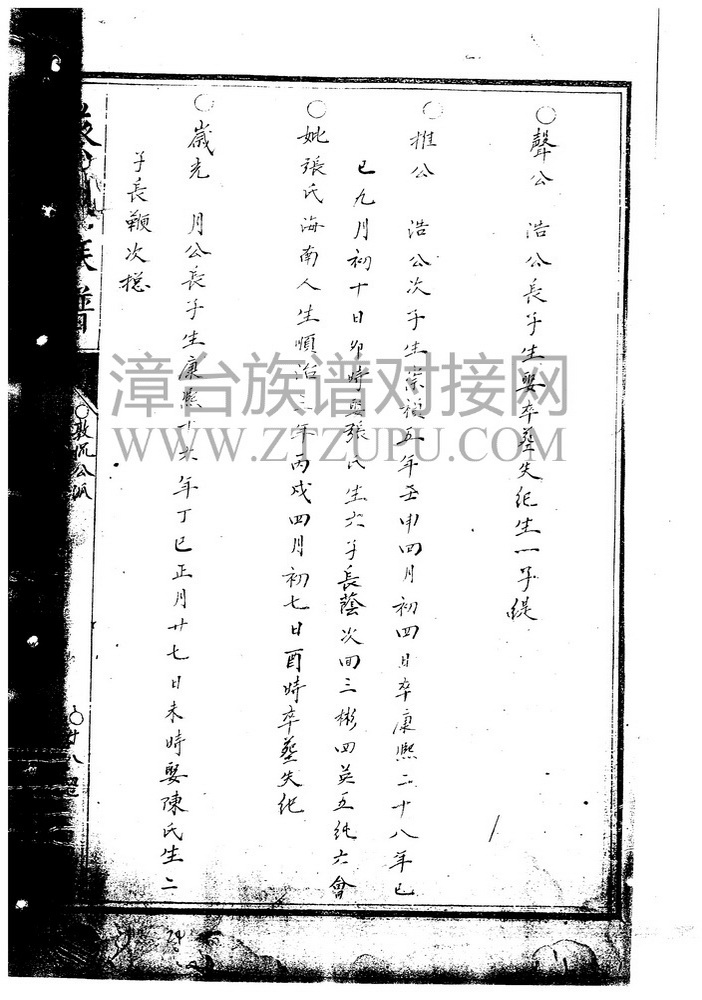 ○聲公 浩公長子生娶卒塟失紀生一子緹
○推公 浩公次子生崇禎五年壬申四月初四日卒康熙二十八年己
巳九月初十日卯時娶張氏生六子長蔭次回三彬四英五純六會
○妣張氏海南人生順治三年丙戌四月初七日酉時卒塟失紀
○歲光 月公長子生康熙十六年丁巳正月廿七日未時娶陳氏生二
子長鞭次
族譜
○敦 公派
○廿八
漳台族谱对接网
WWW.ZTZUPU.COM